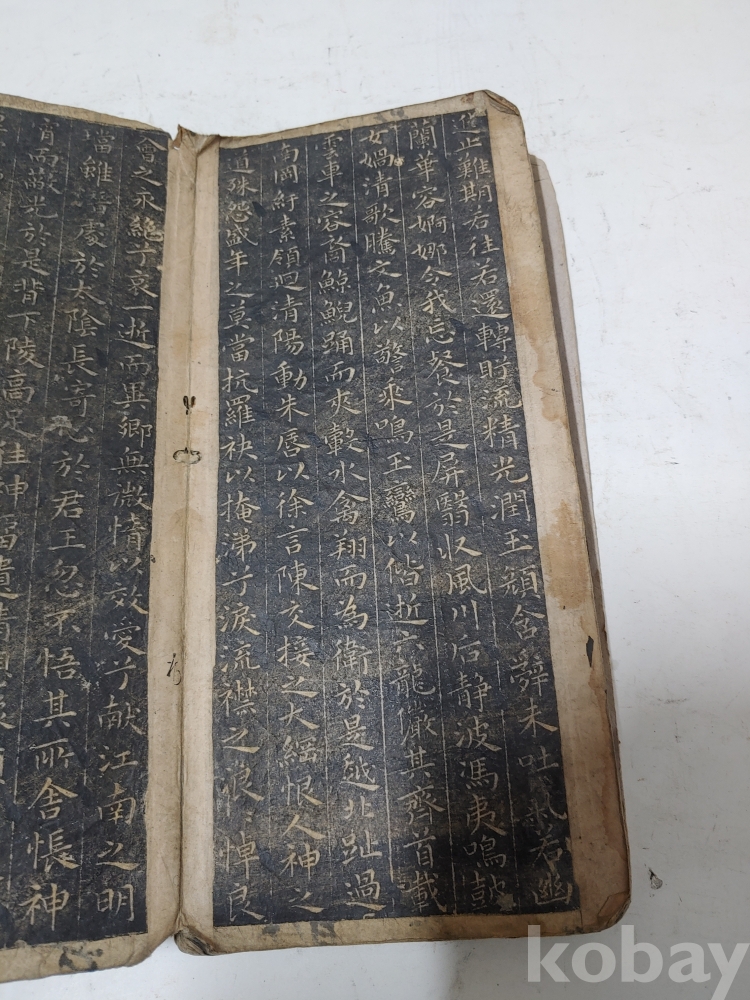 進止難期若往若還轉眄流精光潤玉顏含辭未吐氣若幽
蘭華容婀娜令我忘餐於是屏翳收風川后静波馮夷鳴鼓
女媧清歌騰文魚以警乘鳴玉鸞以偕逝六龍儼其齊首載
雲車之容裔鯨鯢踊而夾轂水禽翔而為衛於是越北沚過
南岡紆素領迴清陽動朱唇以徐言陳交接之大綱恨人神之
道殊怨盛年之莫當抗羅袂以掩涕兮淚流襟之浪〻悼良
會之永絶兮哀一逝而異鄉無微情以效愛兮献江南之明
璫雖潛處於太陰長寄心於君王忽不悟其所舍悵神
宵而蔽光於是背下陵高足往神留遺情
kobay